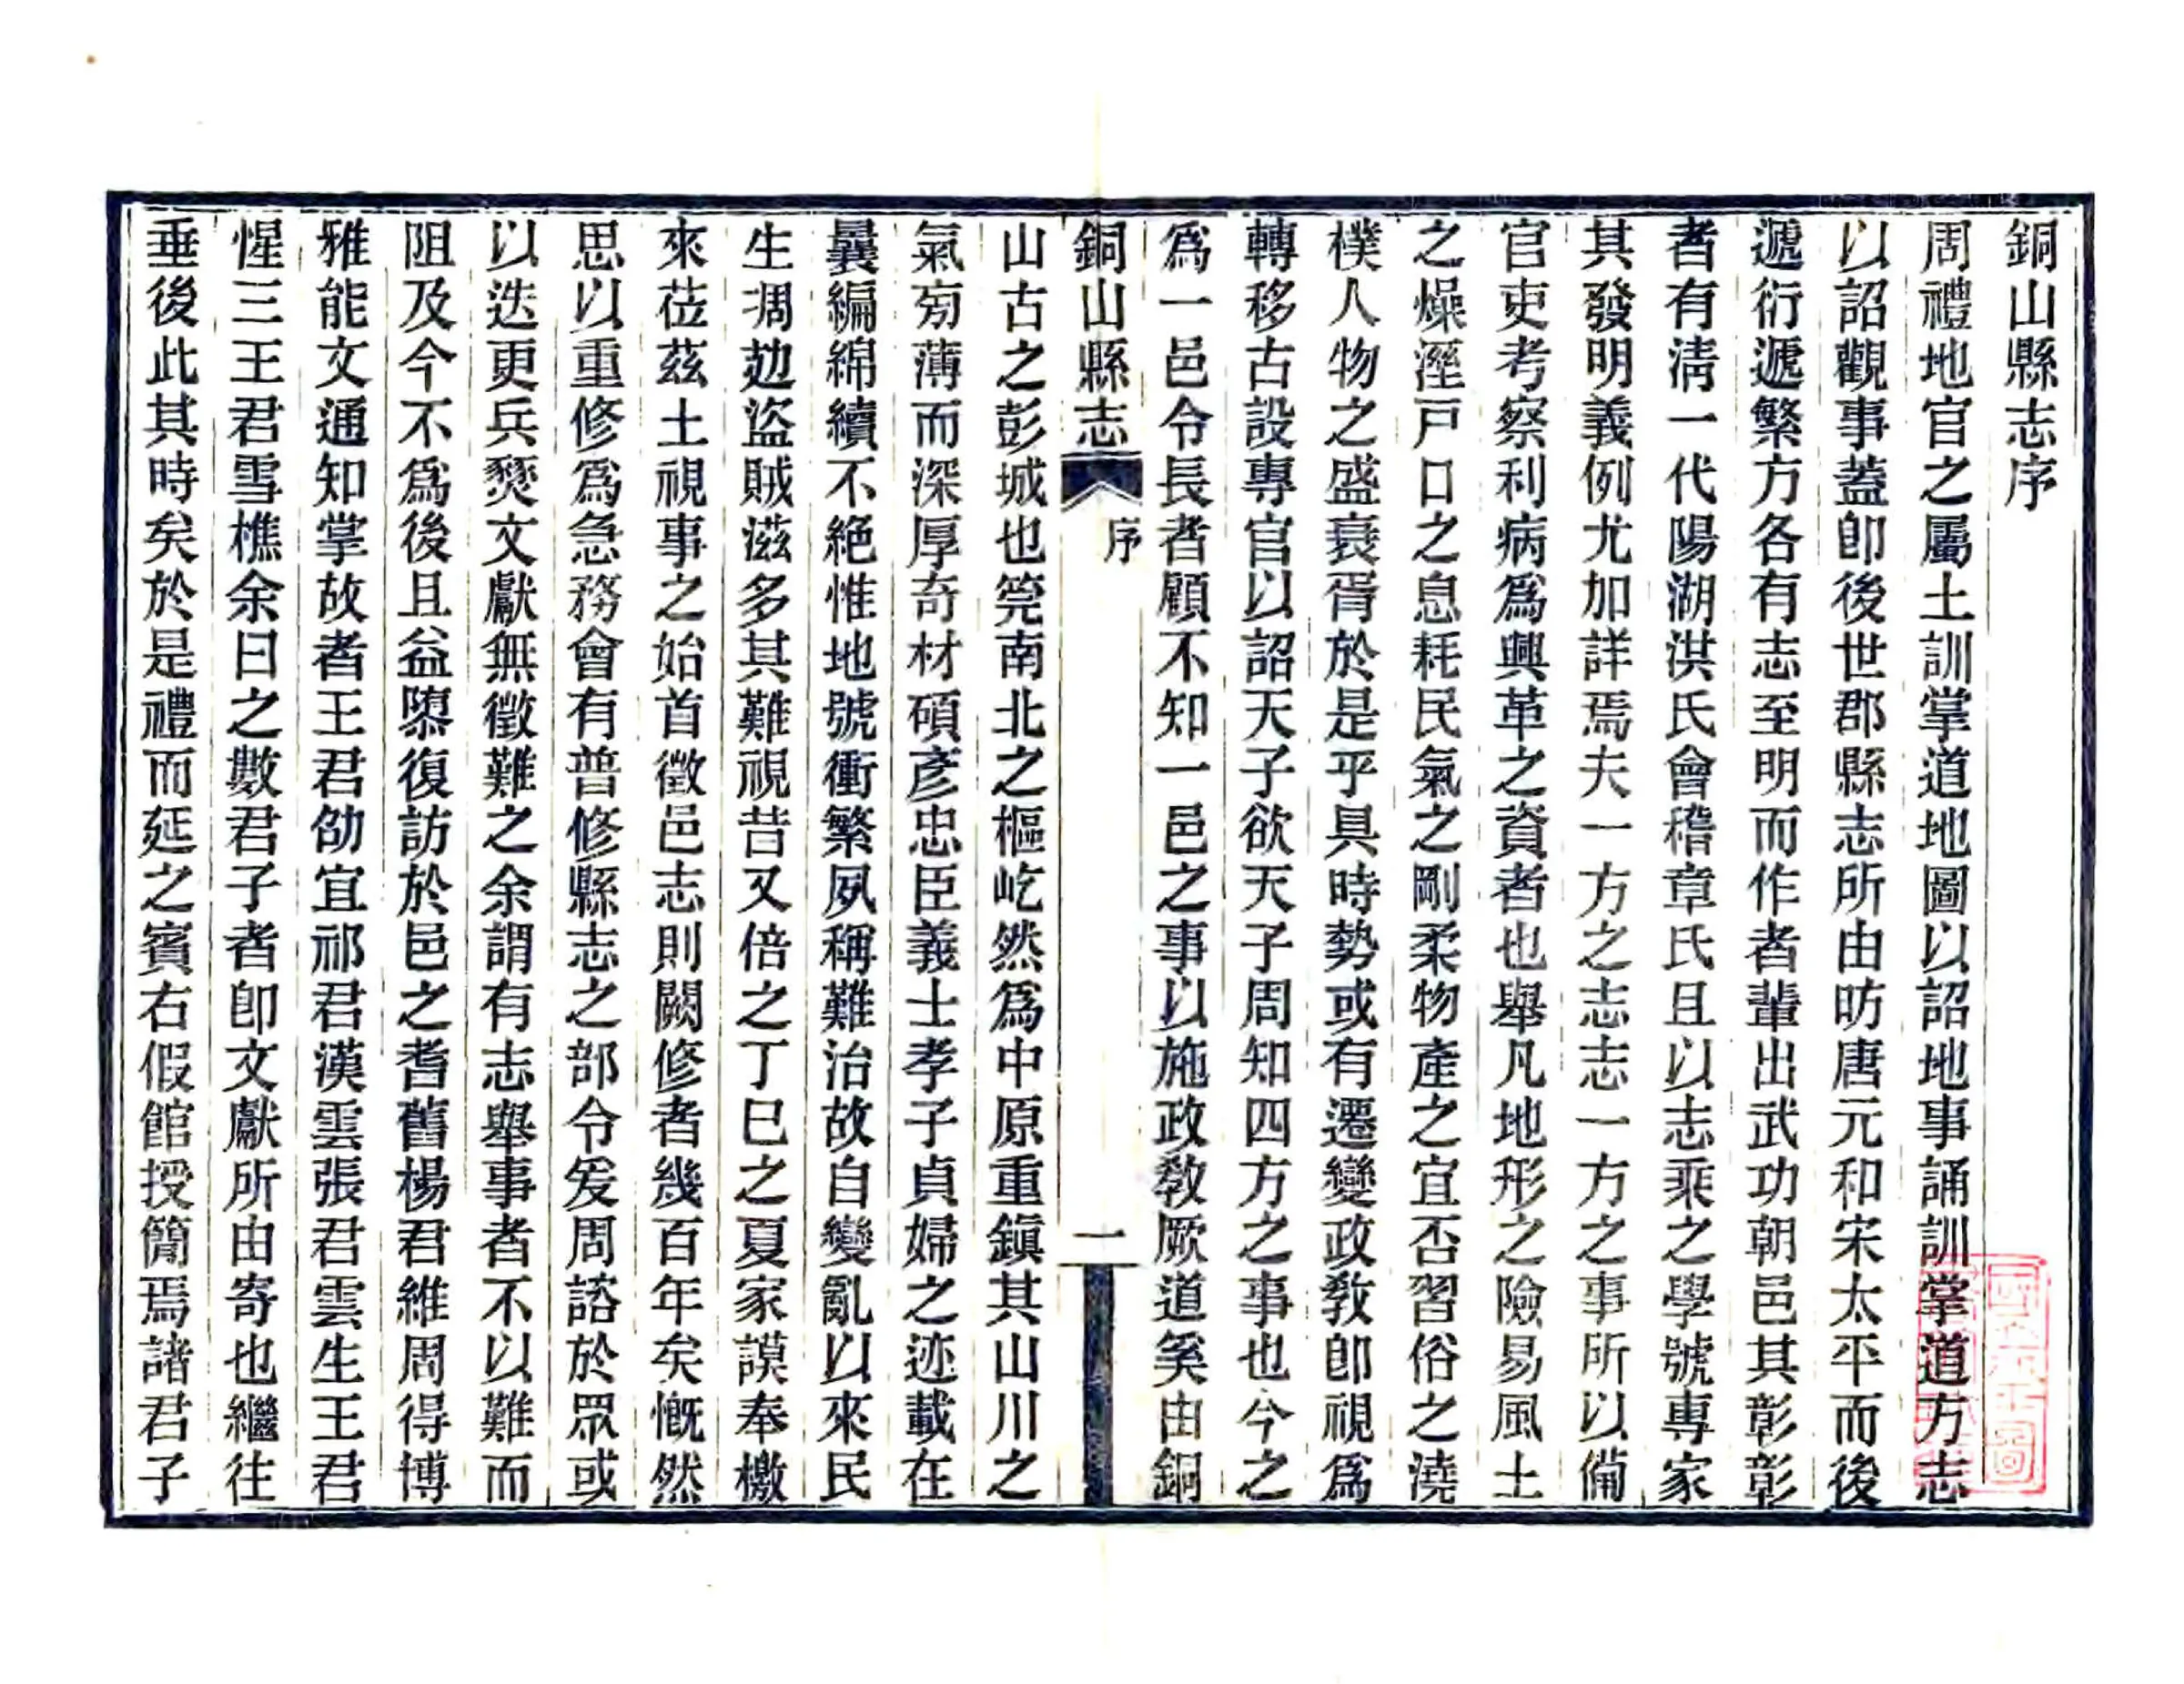 銅山縣志序
周禮地官之屬土訓掌道地圖以詔地事誦訓掌道方志
以詔觀事蓋卽後世郡縣志所由昉唐元和宋太平而後
遞衍遞繁方各有志至明而作者輩出武功朝邑其彰彰
者有淸一代陽湖洪氏會稽章氏且以志乘之學號專家
其發明義例尤加詳焉夫一方之志志一方之事所以備
官吏考察利病爲興革之資者也舉凡地形之險易風土
之燥溼戸口之息耗民氣之剛柔物產之宜否習俗之澆
樸人物之盛衰胥於是乎具時勢或有遷變政敎卽視爲
轉移古設專官以詔天子欲天子周知四方之事也今之
爲一邑令長者顧不知一邑之事以施政敎厥道奚由銅
銅山縣志
序
一
山古之彭城也筦南北之樞屹然爲中原重鎭其山川之
氣旁薄而深厚奇材碩彥忠臣義士孝子貞婦之迹載在
曩編綿續不絕惟地號衝繁夙稱難治故自變亂以來民
生凋攰盜賊滋多其難視昔又倍之丁巳之夏家謨奉檄
來莅茲土視事之始首徵邑志則闕修者幾百年矣慨然
思以重修爲急務會有普修縣志之部令爰周諮於眾或
以迭更兵燹文獻無徵難之余謂有志舉事者不以難而
阻及今不爲後且益隳復訪於邑之耆舊楊君維周得博
雅能文通知掌故者王君劭宜祁君漢雲張君雲生王君
惺三王君雪樵余曰之數君子者卽文獻所由寄也繼往
垂後此其時矣於是禮而延之賓右假館授簡焉諸君子